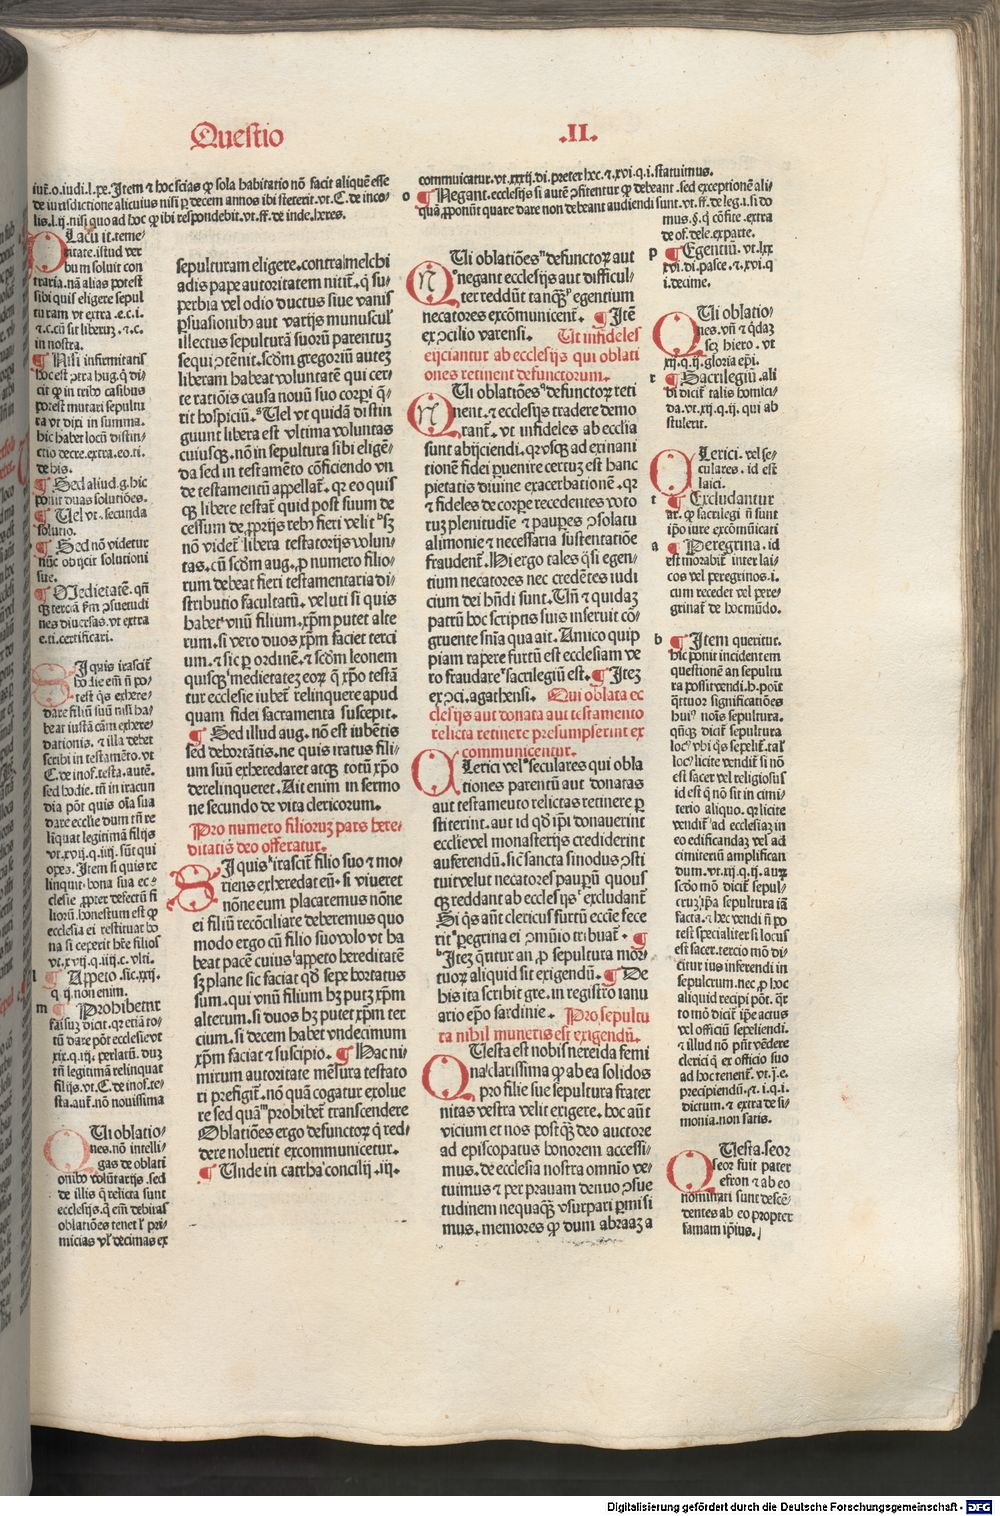 Questio
.II.
iur̃.o.iudi.l.pe. Item ⁊ hoc scias ꝙ sola habitatio nō facit aliquē esse
de iurisdictione alicuius nisi ꝑ decem annos ibi steterit.vt.C.de inco-
lis.l.ij.nisi quo ad hoc ꝙ ibi respondebit.vt.ff.de inde.heres.
PLacu it.teme-
ritate.istud ver
bum soluit con
traria.nā alias potest
sibi quis eligere sepul
turam vt extra.e.c.i.
⁊.c.cū sit liberuꝫ.⁊.c.
in nostra.
¶ Nisi infirmitatis
hoc est ꝯtra hug.q̄ di-
cit ꝙ in tribꝰ casibus
potest mutari sepultu
ra vt dixi in summa.
hic habet locū distin-
ctio decre.extra.eo.ti.
de his.
¶ Sed aliud.g.hic
ponit duas solutiões.
¶ Uel vt.secunda
solutio.
¶ Sed nō videtur
nūc obijcit solutioni
sue.
¶ Medietatē.qñ
qꝫ tercia ꝑm ꝯsuetudi
nes diuersas.vt extra
e.ti.certificari.
SI quis irascit̃
hodie em̄ n̄ po-
test q̄s exhere-
dare filiū suū nisi ha-
beat iustā cām exhere
dationis.⁊ illa debet
scribi in testamēto.vt
C.de inof.testa.autē.
sed hodie.tñ in iracun
dia pōt quis oīa sua
dare ecclie dum tñ re
liquat legitimā filijs
vt.xvij.q.iiij.sūt qui
opes. Item si quis re
linquit bona sua ec-
clesie ꝓpter defectū fi
lioꝝ.honestum est ꝙ
ecclesia ei restituat bo
na si ceperit hr̄e filios
vt.xvij.q.iiij.c.vlti.
l ¶ Appeto.sic.xxij.
q.ij.non enim.
m ¶ Prohibetur
falsuꝫ dicit.qr etiā to-
tū dare pōt ecclesie vt
xix.q.iij.perlatū.duꝫ
tñ legitimā relinquat
filijs.vt.C.de inof.te-
sta.aut̃.nō nouissima
QUi oblatio-
nes.nō intelli-
gas de oblati
onibꝰ volūtarijs.sed
de illis q̄ relicta sunt
ecclesijs.q̄ em̄ debitas
oblatiões tenet l̃ pri-
micias vl̃ decimas ex
sepulturam eligere.contra melchi
adis pape autoritatem nitit̃.q̄ su-
perbia vel odio ductus siue vanis
ꝑsuasionibꝰ aut varijs munusculꝭ
illectus sepulturā suorū parentuꝫ
sequi ꝯtēnit.scd̄m gregoriū auteꝫ
liberam habeat voluntatē qui cer-
te ratiōis causa nouū suo corpi q̄-
rit hospiciū.Uel vt quidā distin
guunt libera est vltima voluntas
cuiusqꝫ.nō in sepultura sibi eligē-
da sed in testamēto cōficiendo vn
de testamentū appellat̃.qr eo quis
qꝫ libere testat̃ quid post suum de
cessum de ꝓprijs rebꝰ fieri velit sꝫ
nō videt̃ libera testatorijs volun-
tas.cū scd̄m aug.ꝓ numero filio-
rum debeat fieri testamentaria di-
stributio facultatū.veluti si quis
habet vnū filium.xp̄m putet alte
rum.si vero duos xp̄m faciet terci
um.⁊ sic ꝑ ordinē.⁊ scd̄m leonem
quisqꝫ medietateꝫ eoꝝ q̄ xp̄o testā
tur ecclesie iubet̃ relinquere apud
quam fidei sacramenta suscepit.
¶ Sed illud aug.nō est iubētis
sed dehortātis.ne quis iratus fili-
um suū exheredaret atqꝫ totū xp̄o
derelinqueret.Ait enim in sermo
ne secundo de vita clericorum.
Pro numero filioruꝫ pars here-
ditatis deo offeratur.
SI quis irascit̃ filio suo ⁊ mo-
riens exheredat eū.si viueret
nōne eum placaremus nōne
ei filiū recōciliare deberemus quo
modo ergo cū filio suo volo vt ha
beat pacē cuius appeto hereditatē
sꝫ plane sic faciat qd̄ sepe hortatus
sum.qui vnū filium hꝫ putꝫ xp̄m
alterum.si duos hꝫ putet xp̄m ter
cium.si decem habet vndecimum
xp̄m faciat ⁊ suscipio.¶ Hac ni-
mirum autoritate mēsura testato
ri prefigit̃.nō quā cogatur exolue
re sed quā prohibet̃ transcendere
Oblatiões ergo defunctoꝝ q̄ red-
dere noluerit excommunicetur.
¶ Unde in cartha concilij .iij.
commuicatur.vt.xxxij.di.preter hec.⁊.xvi.q.i.statuimus.
o ¶ Negant.ecclesijs si autē ꝯfitentur ꝙ debeant.sed exceptionē ali-
quā ꝓponūt quare dare non debeant audiendi sunt.vt.ff.de leg.i.si do
mus.§.q̄ cōfite.extra
de of.dele.ex parte.
QUi oblatiões defunctoꝝ aut
negant ecclesijs aut difficul-
ter reddūt tanqꝫ egentium
necatores excōmunicent̃.¶ Itē
ex ꝯcilio varensi. Ut infideles
eijciantur ab ecclesijs qui oblati
ones retinent defunctorum.
QUi oblatiões defunctoꝝ reti
nent.⁊ ecclesijs tradere demo
rant̃.vt infideles ab ecclia
sunt abijciendi.qr vsqꝫ ad exinani
tionē fidei ꝑuenire certuꝫ est hanc
pietatis diuine exacerbationē.qr
⁊ fideles de corpe recedentes voto
ruꝫ plenitudie ⁊ paupes ꝯsolatu
alimonie ⁊ necessaria sustentatiōe
fraudent̃.Hi ergo tales q̄si egen-
tium necatores nec credētes iudi
cium dei hn̄di sunt.Un̄ ⁊ quidaꝫ
patrū hoc scriptis suis inseruit cō-
gruente sn̄ia qua ait.Amico quip
piam rapere furtū est ecclesiam ve
ro fraudare sacrilegiū est.¶ Iteꝫ
ex ꝯci.agathensi. Qui oblata ec
clesijs aut donata aut testamento
relicta retinere presumpserint ex
communicentur.
CLerici vel seculares qui obla
tiones parentū aut donatas
aut testamento relictas retinere ꝑ
stiterint.aut id qd̄ ip̄i donauerint
ecclie vel monasterijs crediderint
auferendū.sic̃ sancta sinodus ꝯsti
tuit velut necatores paupeꝝ quous
qꝫ reddant ab ecclesijs excludant̃
Si q̄s aūt clericus furtū eccie fece
rit peregrina ei ꝯmūio tribuat̃. ¶
Iteꝫ q̄ritur an ꝓ sepultura mor
tuoꝝ aliquid sit exigendū.¶ De
his ita scribit gre.in registro ianu
ario ep̄o sardinie. Pro sepultu
ra nihil muneris est exigendū.
QUesta est nobis nereida femi
na clarissima ꝙ ab ea solidos
pro filie sue sepultura frater
nitas vestra velit exigere.hoc aūt
vicium et nos postqꝫ deo auctore
ad episcopatus honorem accessi-
mus.de ecclesia nostra omnio ve-
tuimus ⁊ per prauam denuo ꝯsue
tudinem nequaqꝫ vsurpari ꝑmisi
mus.memores ꝙ dum abraaꝫ a
p ¶ Egentiū.vt.lxx
xvi.di.pasce.⁊.xvi.q
i.decime.
QUi oblatio-
nes.vn̄ ⁊ q̄daꝫ
scꝫ hiero.vt
xij.q.ij.gloria ep̄i.
r ¶ Sacrilegiū.ali
bi dicit̃ talis homici-
da.vt.xij.q.ij.qui ab
stulerit.
CLerici.vel se-
culares.id est
laici.
t ¶ Excludantur
ar̃.ꝙ sacrilegi n̄ sunt
ip̄o iure excōmūicati
a ¶ Peregrina.id
est morabit̃ inter lai-
cos vel peregrinos.i.
cum recedet vel pere-
grinat̃ de hoc mūdo.
b ¶ Item queritur.
hic ponit incidentem
questionē an sepultu
ra possit vendi.h.ponit
q̄ttuor significatiões
huiꝰ nois sepultura.
qn̄qꝫ dicit̃ sepultura
locꝰ vbi q̄s sepelit̃.tal̃
locꝰ licite vendit̃ si nō
est sacer vel religiosus
id est q̄ nō sit in cimi-
terio aliquo.qr licite
vendit̃ ad ecclesiaꝫ in
eo edificandaꝫ vel ad
cimiteriū amplifican
dum.vt.xij.q.ij.auꝝ
scd̄o mō dicit̃ sepul-
cruꝫ ip̄a sepultura iā
facta.⁊ hec vendi n̄ po
test specialiter si locus
est sacer.tercio mō di-
citur ius inferendi in
sepulcrum.nec ꝓ hoc
aliquid recipi pōt.q̄r
to mō dicit̃ ip̄e actus
vel officiū sepeliendi.
⁊ illud nō pn̄t vēdere
clerici q̄ ex officio suo
ad hoc tenent̃.vt.j.e.
precipiendū.⁊.i.q.i.
dictum.⁊ extra de si-
monia.non satis.
QUesta.seor
seor fuit pater
efron ⁊ ab eo
nominati sunt descē-
dentes ab eo propter
famam ip̄ius.
Digitalisierung gefördert durch die Deutsche Forschungsgemeinschaft - DFG